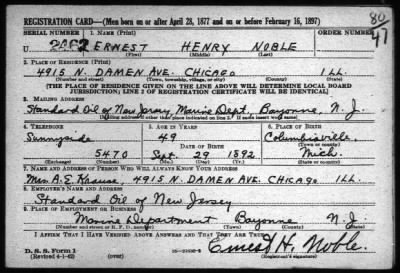 REGISTRATION CARD—(Men born on or after April 28, 1877 and on or before February 16, 1897)
SERIAL NUMBER 1. NAME (Print) ORDER NUMBER
U ERNEST HENRY NOBLE
(First) (Middle) (Last)
2. PLACE OF RESIDENCE (Print)
4915 N. DAMEN AVE. CHICAGO ILL.
(Number and street) (Town, township, village, or city) (County) (State)
[THE PLACE OF RESIDENCE GIVEN ON THE LINE ABOVE WILL DETERMINE LOCAL BOARD
JURISDICTION; LINE 2 OF REGISTRATION CERTIFICATE WILL BE IDENTICAL]
3. MAILING ADDRESS
Standard Oil of New Jersey Marine Dept., Bayonne, N. J.
[Mailing address if other than place indicated on line 2. If same insert word same]
4. TELEPHONE 5. AGE IN YEARS 6. PLACE OF BIRTH
Sunnyside 49 Columbiaville
DATE OF BIRTH (Town or county)
5470 Sept. 29 1892 Mich.
(Exchange) (Number) (Mo.) (Day) (Yr.) (State or country)
7. NAME AND ADDRESS OF PERSON WHO WILL ALWAYS KNOW YOUR ADDRESS
Mrs. A. E. Krause, 4915 N. DAMEN AVE. CHICAGO ILL.
8. EMPLOYER'S NAME AND ADDRESS
Standard Oil of New Jersey
9. PLACE OF EMPLOYMENT OR BUSINESS
Marine Department Bayonne N. J.
(Number and street or R. F. D. number) (Town) (County) (State)
I AFFIRM THAT I HAVE VERIFIED ABOVE ANSWERS AND THAT THEY ARE TRUE.
D. S. S. Form 1
(Revised 4-1-42) (over) Ernest H. Noble.
(Registrant's signature)